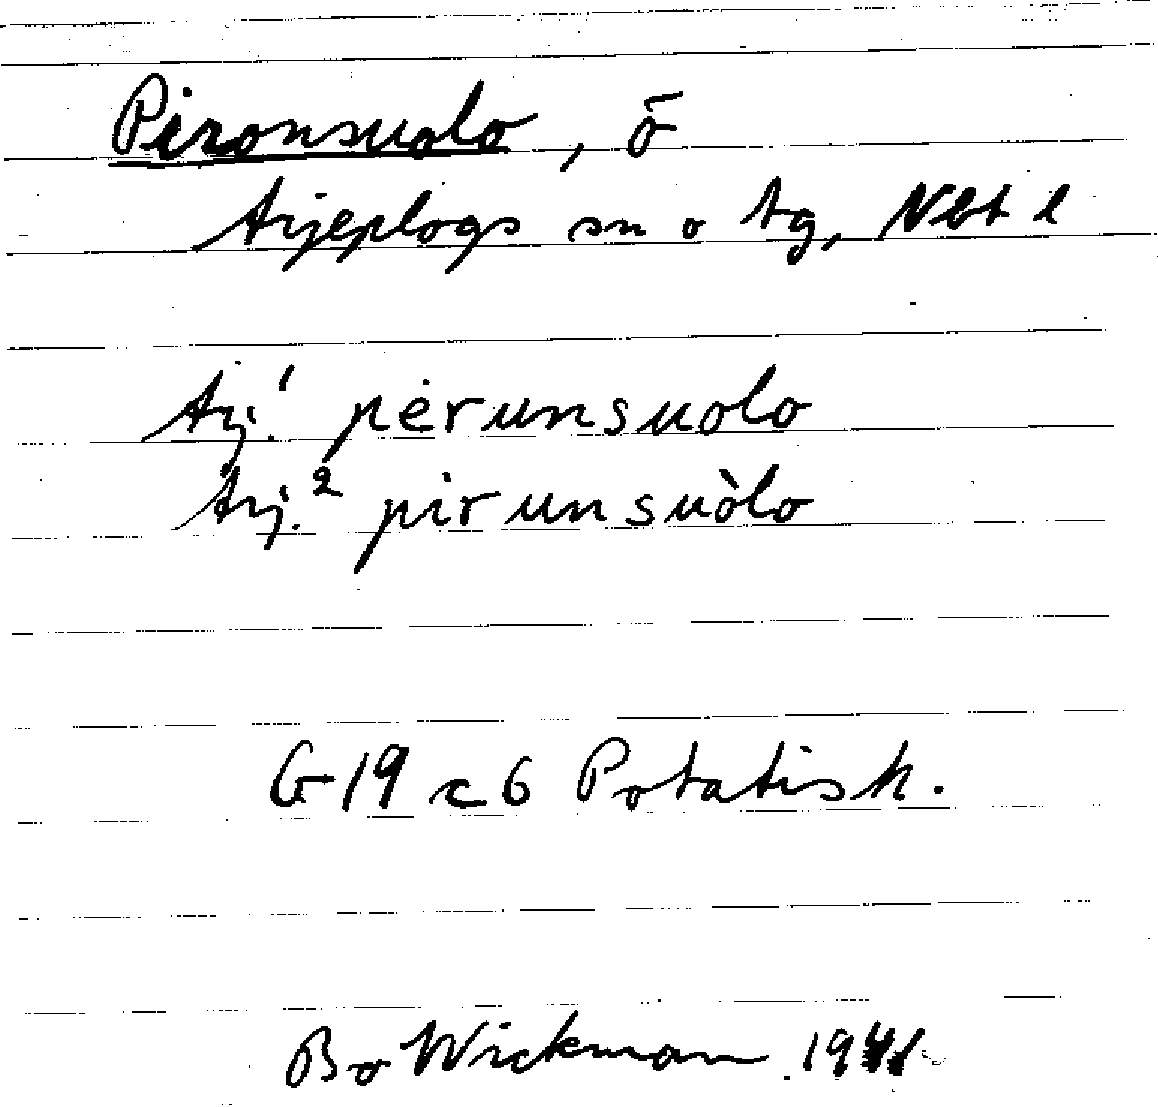 Pironsuolo, ö
Arjeplogs sn o tg, Nbt l
Arj.¹ pėrunsuolo
Arj.² pirunsuòlo
G 19 c 6 Potatisk.
Bo Wickman 1941